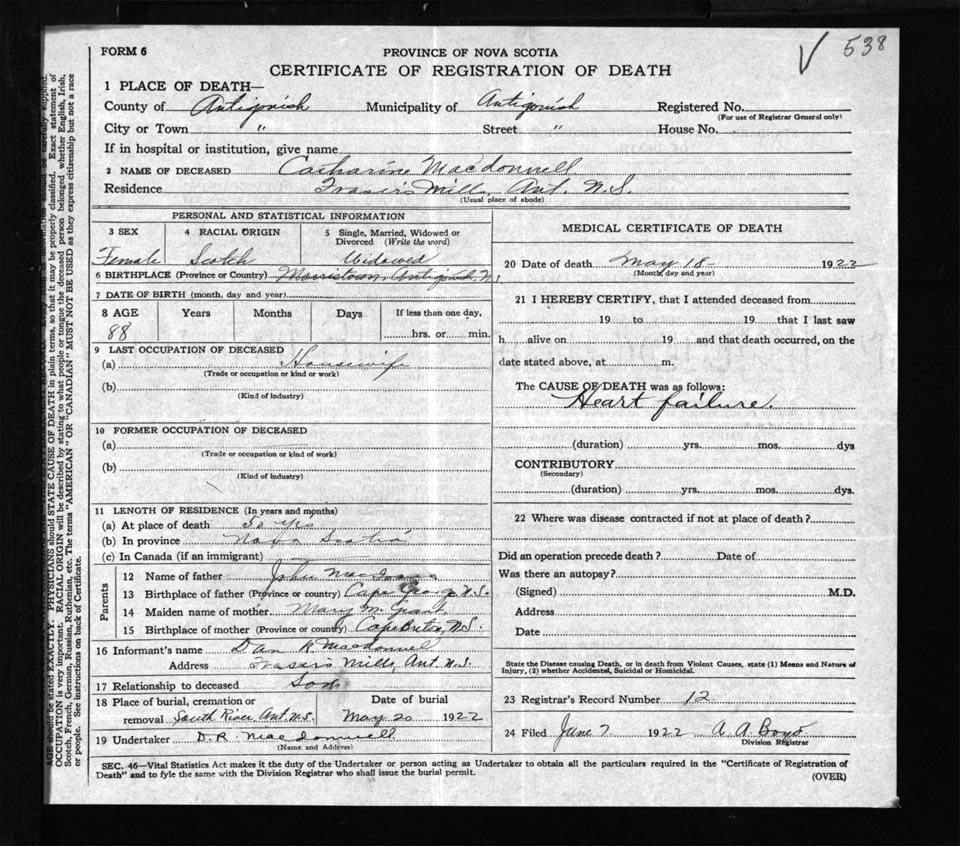 538
FORM 6
PROVINCE OF NOVA SCOTIA
CERTIFICATE OF REGISTRATION OF DEATH
1 PLACE OF DEATH—
County of Antigonish Municipality of Antigonish Registered No.
(For use of Registrar General only)
City or Town " Street " House No.
If in hospital or institution, give name
2 NAME OF DECEASED Catharine Macdonnell
Residence Frasers Mills, Ant. N.S.
(Usual place of abode)
PERSONAL AND STATISTICAL INFORMATION
3 SEX 4 RACIAL ORIGIN 5 Single, Married, Widowed or Divorced (Write the word)
Female Scotch Widowed
6 BIRTHPLACE (Province or Country) Morristown, Antigonish, N.S.
7 DATE OF BIRTH (month, day and year)
8 AGE Years Months Days If less than one day,
88 hrs. or min.
9 LAST OCCUPATION OF DECEASED
(a) Housewife
(Trade or occupation or kind or work)
(b)
(Kind of industry)
10 FORMER OCCUPATION OF DECEASED
(a)
(Trade or occupation or kind of work)
(b)
(Kind of industry)
11 LENGTH OF RESIDENCE (In years and months)
(a) At place of death 50 yrs
(b) In province Nova Scotia
(c) In Canada (if an immigrant)
Parents
12 Name of father John MacIsaac
13 Birthplace of father (Province or country) Cape George, N.S.
14 Maiden name of mother Mary M. Grant
15 Birthplace of mother (Province or country) Cape Breton, N.S.
16 Informant's name Dan R. Macdonnell
Address Frasers Mills, Ant. N.S.
17 Relationship to deceased Son
18 Place of burial, cremation or removal South River Ant. N.S. Date of burial May 20 1922
19 Undertaker D. R. Macdonnell
(Name and Address)
MEDICAL CERTIFICATE OF DEATH
20 Date of death May 18 1922
(Month, day and year)
21 I HEREBY CERTIFY, that I attended deceased from
19 to 19 that I last saw
h alive on 19 and that death occurred, on the
date stated above, at m.
The CAUSE OF DEATH was as follows:
Heart failure.
(duration) yrs. mos. dys
CONTRIBUTORY
(Secondary)
(duration) yrs. mos. dys.
22 Where was disease contracted if not at place of death?
Did an operation precede death? Date of
Was there an autopsy?
(Signed) M.D.
Address
Date
State the Disease causing Death, or in death from Violent Causes, state (1) Means and Nature of
Injury, (2) whether Accidental, Suicidal or Homicidal.
23 Registrar's Record Number 12
24 Filed June 7 1922 A. A. Boyd
Division Registrar
SEC. 46—Vital Statistics Act makes it the duty of the Undertaker or person acting as Undertaker to obtain all the particulars required in the "Certificate of Registration of
Death" and to fyle the same with the Division Registrar who shall issue the burial permit.
(OVER)
AGE should be stated EXACTLY. PHYSICIANS should STATE CAUSE OF DEATH in plain terms, so that it may be properly classified. Exact statement of
OCCUPATION is very important. RACIAL ORIGIN will be described by stating to what people or tongue the deceased person belonged whether English, Irish,
Scotch, French, German, Russian, Ruthenian, etc. The terms "AMERICAN" OR "CANADIAN" MUST NOT BE USED as they express citizenship but not a race
or people. See instructions on back of Certificate.